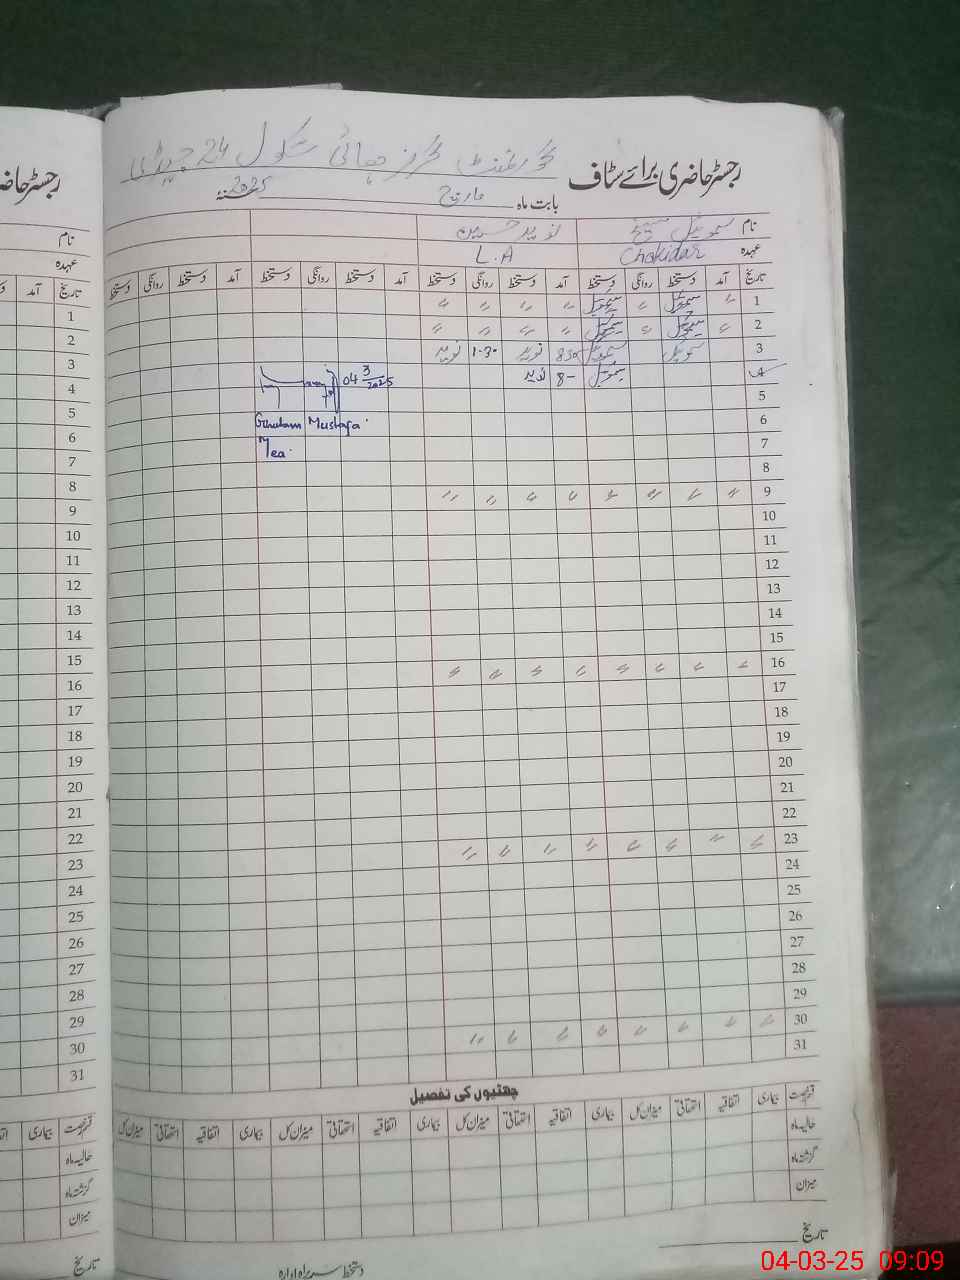 گورنمنٹ گرلز ہائی سکول 24
رجسٹر حاضری برائے سٹاف
بابت ماہ مارچ سنہ 2025
نام سموئیل مسیح نوید حسین
عہدہ Chokidar L.A
تاریخ آمد دستخط روانگی دستخط آمد دستخط روانگی دستخط آمد دستخط روانگی دستخط آمد دستخط روانگی دستخط
1 〃 سموئیل 〃 سموئیل 〃 〃 〃 〃
2 〃 سموئیل 〃 سموئیل 〃 〃 〃 〃
3 سموئیل سموئیل نوید 1-30 نوید
4 سموئیل 8- نوید
04 3/2025
5
6 Ghulam Mustafa.
7 Mea.
8
9 〃 〃 〃 〃 〃 〃 〃 〃
10
11
12
13
14
15
16 〃 〃 〃 〃 〃 〃 〃 〃
17
18
19
20
21
22
23 〃 〃 〃 〃 〃 〃 〃 〃
24
25
26
27
28
29
30 〃 〃 〃 〃 〃 〃 〃 〃
31
چھٹیوں کی تفصیل
قسم رخصت بیماری اتفاقیہ استحقاقی میزان کل بیماری اتفاقیہ استحقاقی میزان کل بیماری اتفاقیہ استحقاقی میزان کل بیماری اتفاقیہ استحقاقی میزان کل
حالیہ ماہ
گزشتہ ماہ
میزان
تاریخ
دستخط سربراہ ادارہ
رجسٹر حاضری
نام
عہدہ
تاریخ آمد
1
2
3
4
5
6
7
8
9
10
11
12
13
14
15
16
17
18
19
20
21
22
23
24
25
26
27
28
29
30
31
قسم رخصت بیماری
حالیہ ماہ
گزشتہ ماہ
میزان
تاریخ
04-03-25 09:09